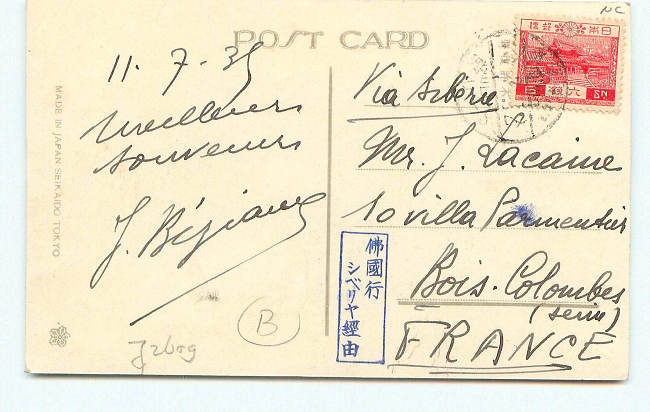 NC
POST CARD
11. 7. 35
Meilleurs
souvenirs
Via Sibérie
Mr. J. Lacaine
10 villa Parmentier
Bois-Colombes
(Seine)
FRANCE
佛國行
シベリヤ經由
日本郵便
六銭
SN
MADE IN JAPAN SEIKAIDO TOKYO
B